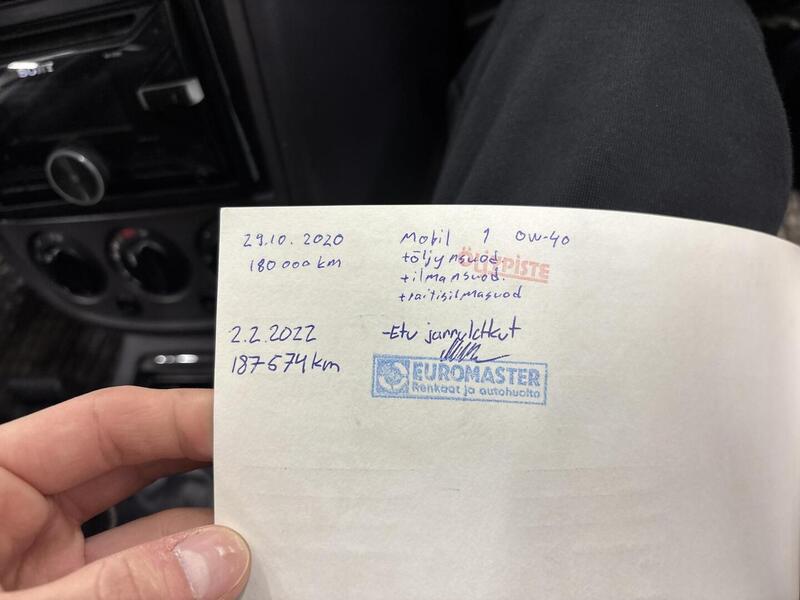 29.10.2020 Mobil 1 0W-40
180 000 km +öljynsuod.
ÖLJYPISTE
+ilmansuod.
+raitisilmasuod
2.2.2022 -Etu jarrulatkut
187574km
EUROMASTER
Renkaat ja autohuolto